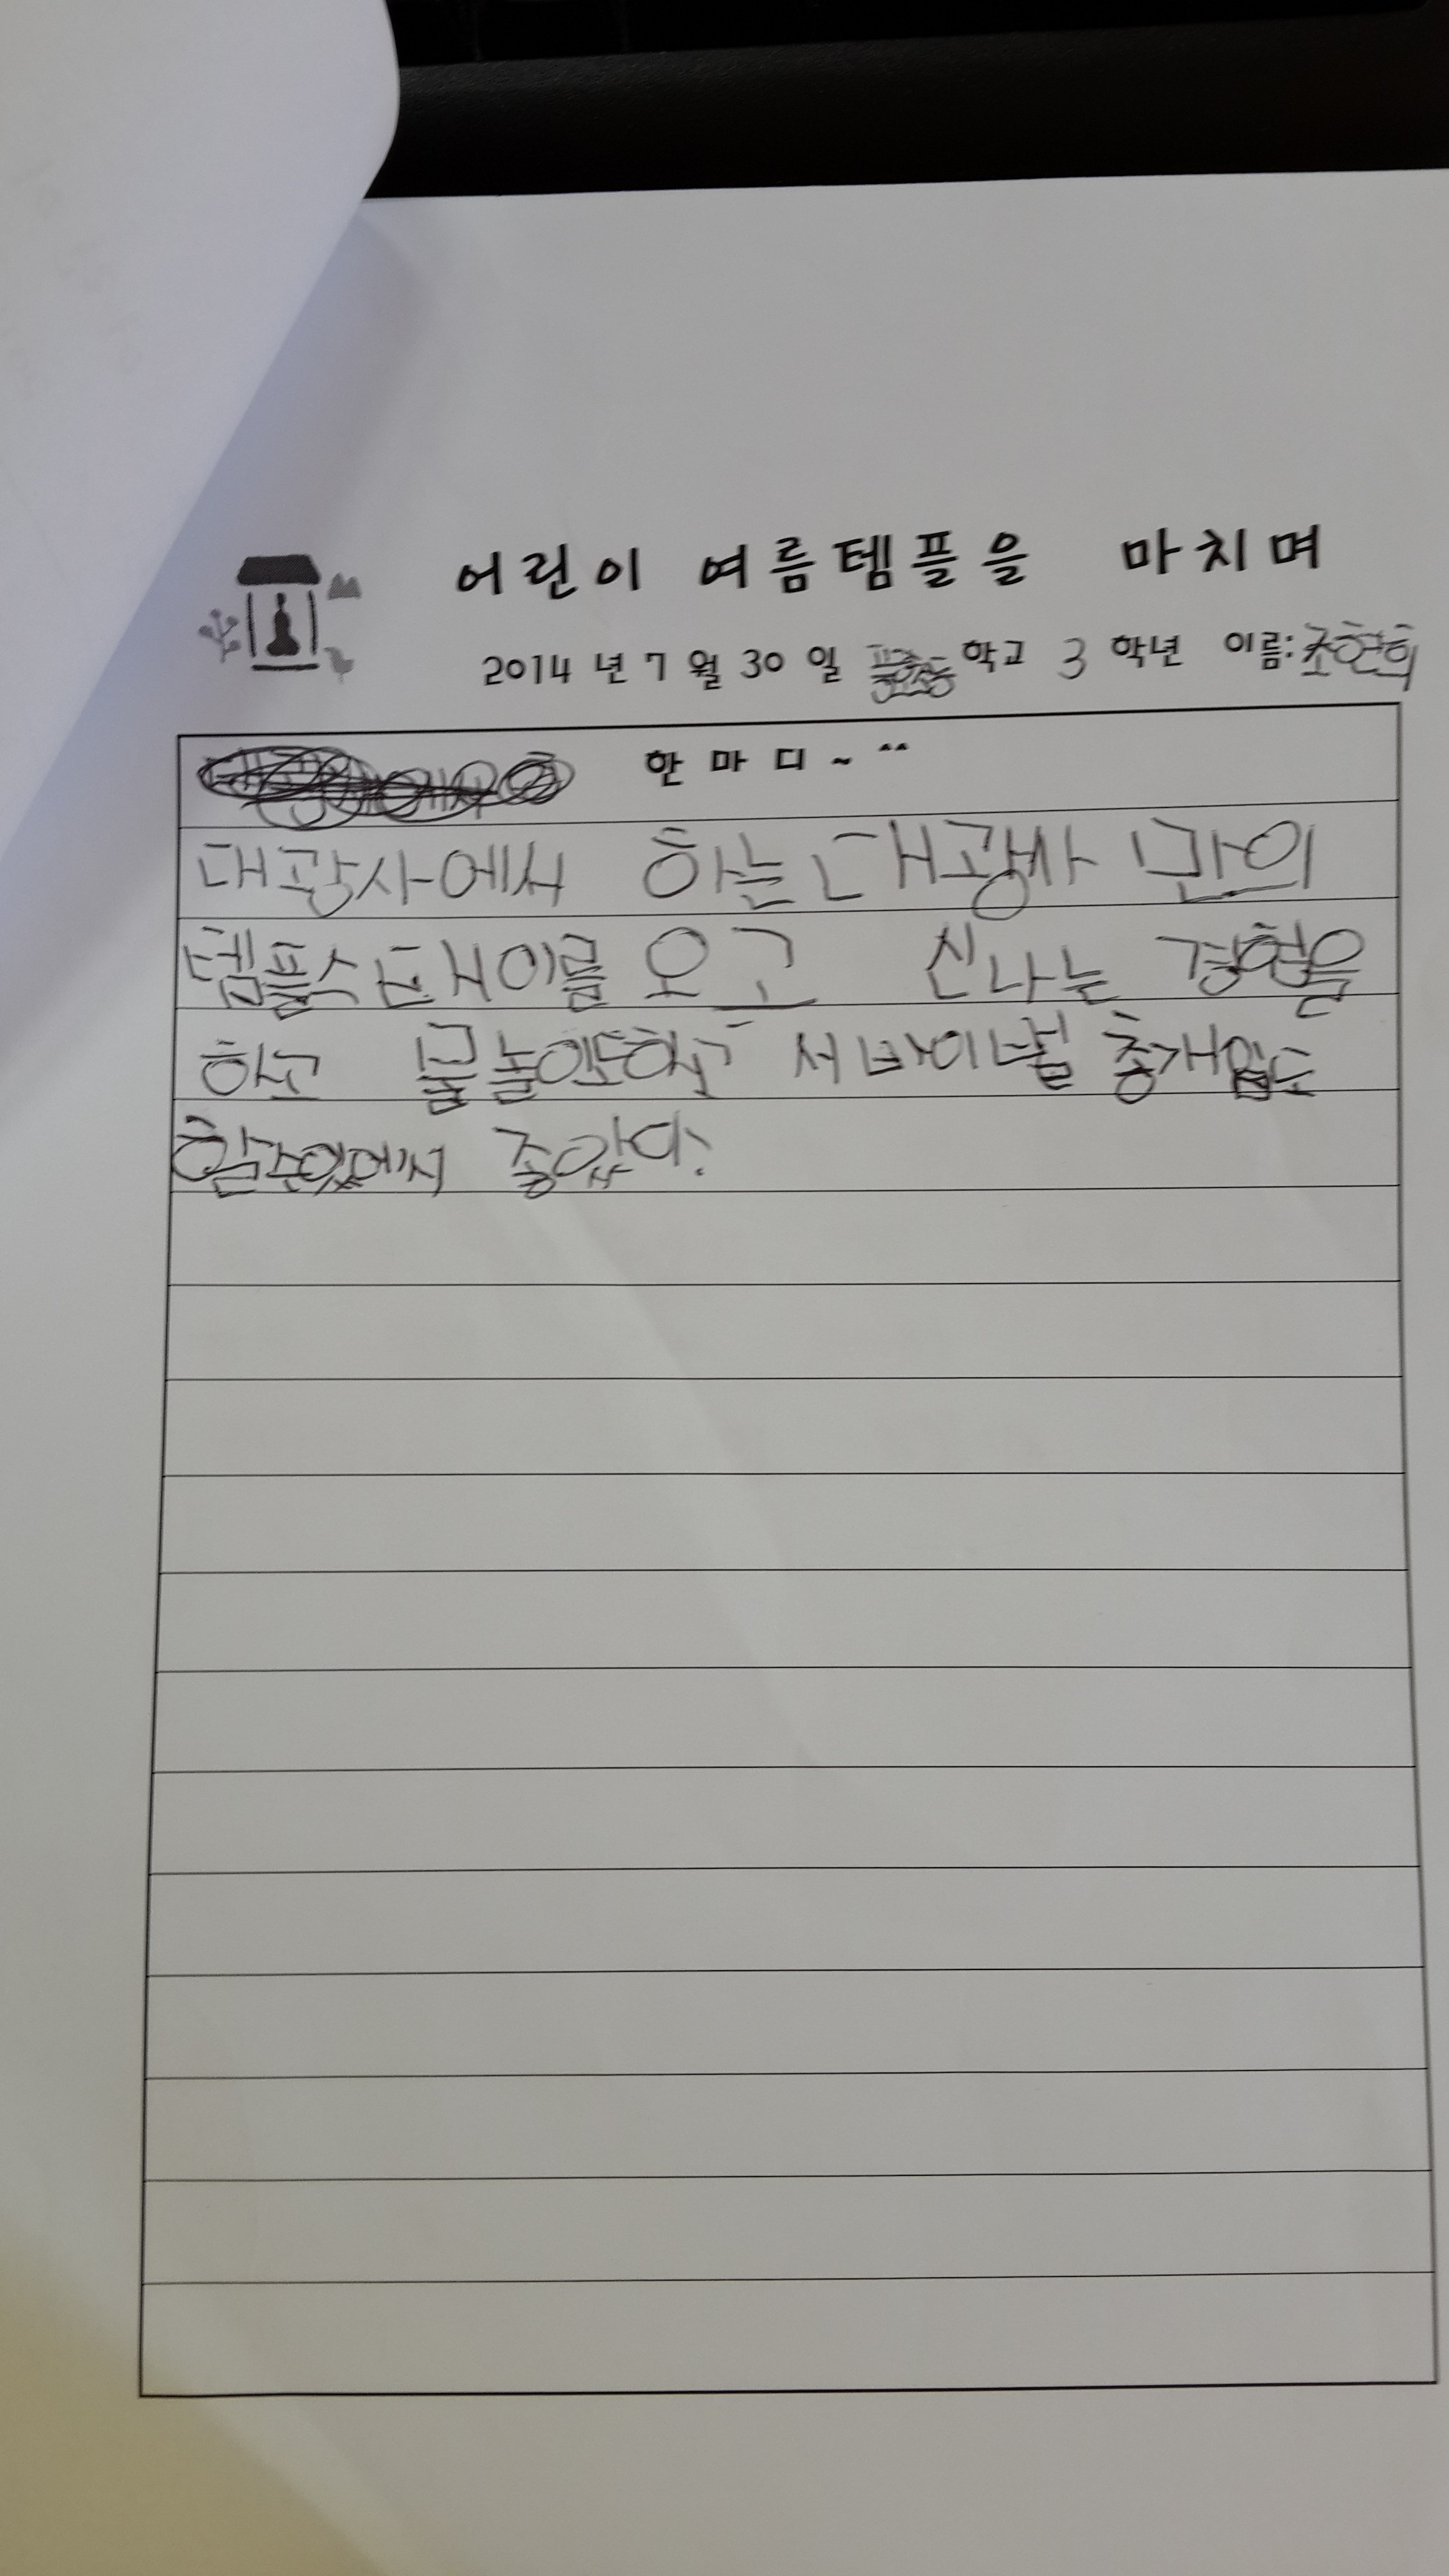 어린이 여름템플을 마치며
2014년 7월 30일 학교 3 학년 이름: 조현희
한마디~ ^^
대광사에서 하는 대광사 만의
템플스테이를 오고 신나는 경험을
하고 물놀이도하고 서바이벌 총게임도
할수있어서 좋았다.